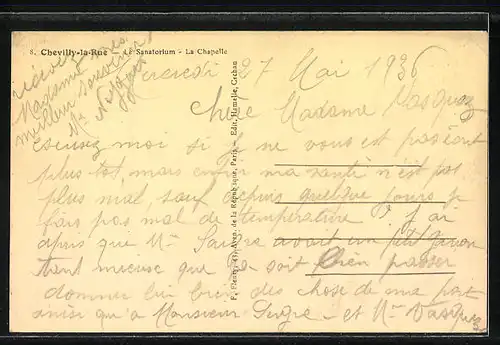 8. Chevilly-la-Rue — Le Sanatorium - La Chapelle
recevez
Madame mes
meilleur souvenir
Mr
Mercredi 27 Mai 1936
Chère Madame Pasquez
escusez moi si je ne vous est pas
plus tot mais enfin ma santé n'est pas
plus mal sauf depuis quelque jours je
fais pas mal de température J'ai
apris que Mr avait un petit garçon
tant mieux que sa soit bien passer
donner lui bien des chose de ma part
ainsi qu'a Monsieur Serge et Mr Pasquez
F. Fleury, Aven. de la République, Paris — Edit. Hamelle, Cachan